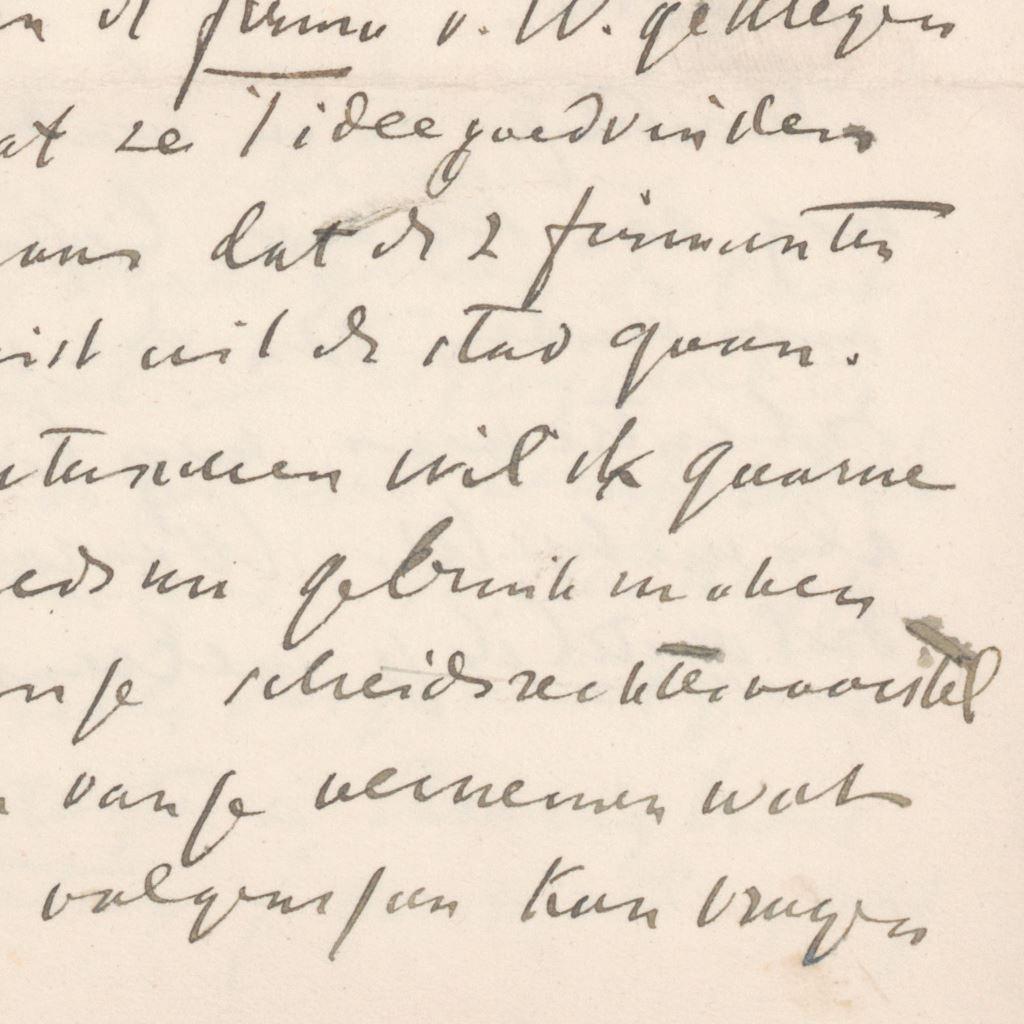 n de firma v. W. gekregen
at ze 't idee goedvinden
dat de 2 firmanten
uit de stad gaan.
tusschen wil ik gaarne
eds nu gebruik maken
van je scheidsrechtersvoorstel
van je vernemen wat
volgens jou kan vragen